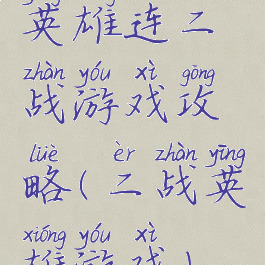 英雄连二
zhàn yóu xì gōng
战游戏攻
lüè èr zhàn yīng
略(二战英
xióng yóu xì
雄游戏)